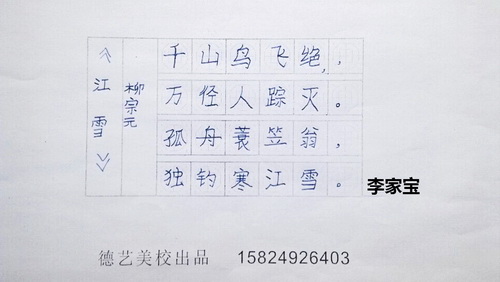 《江雪》
柳宗元
千山鸟飞绝，
万径人踪灭。
孤舟蓑笠翁，
独钓寒江雪。
李家宝
德艺美校出品 15824926403